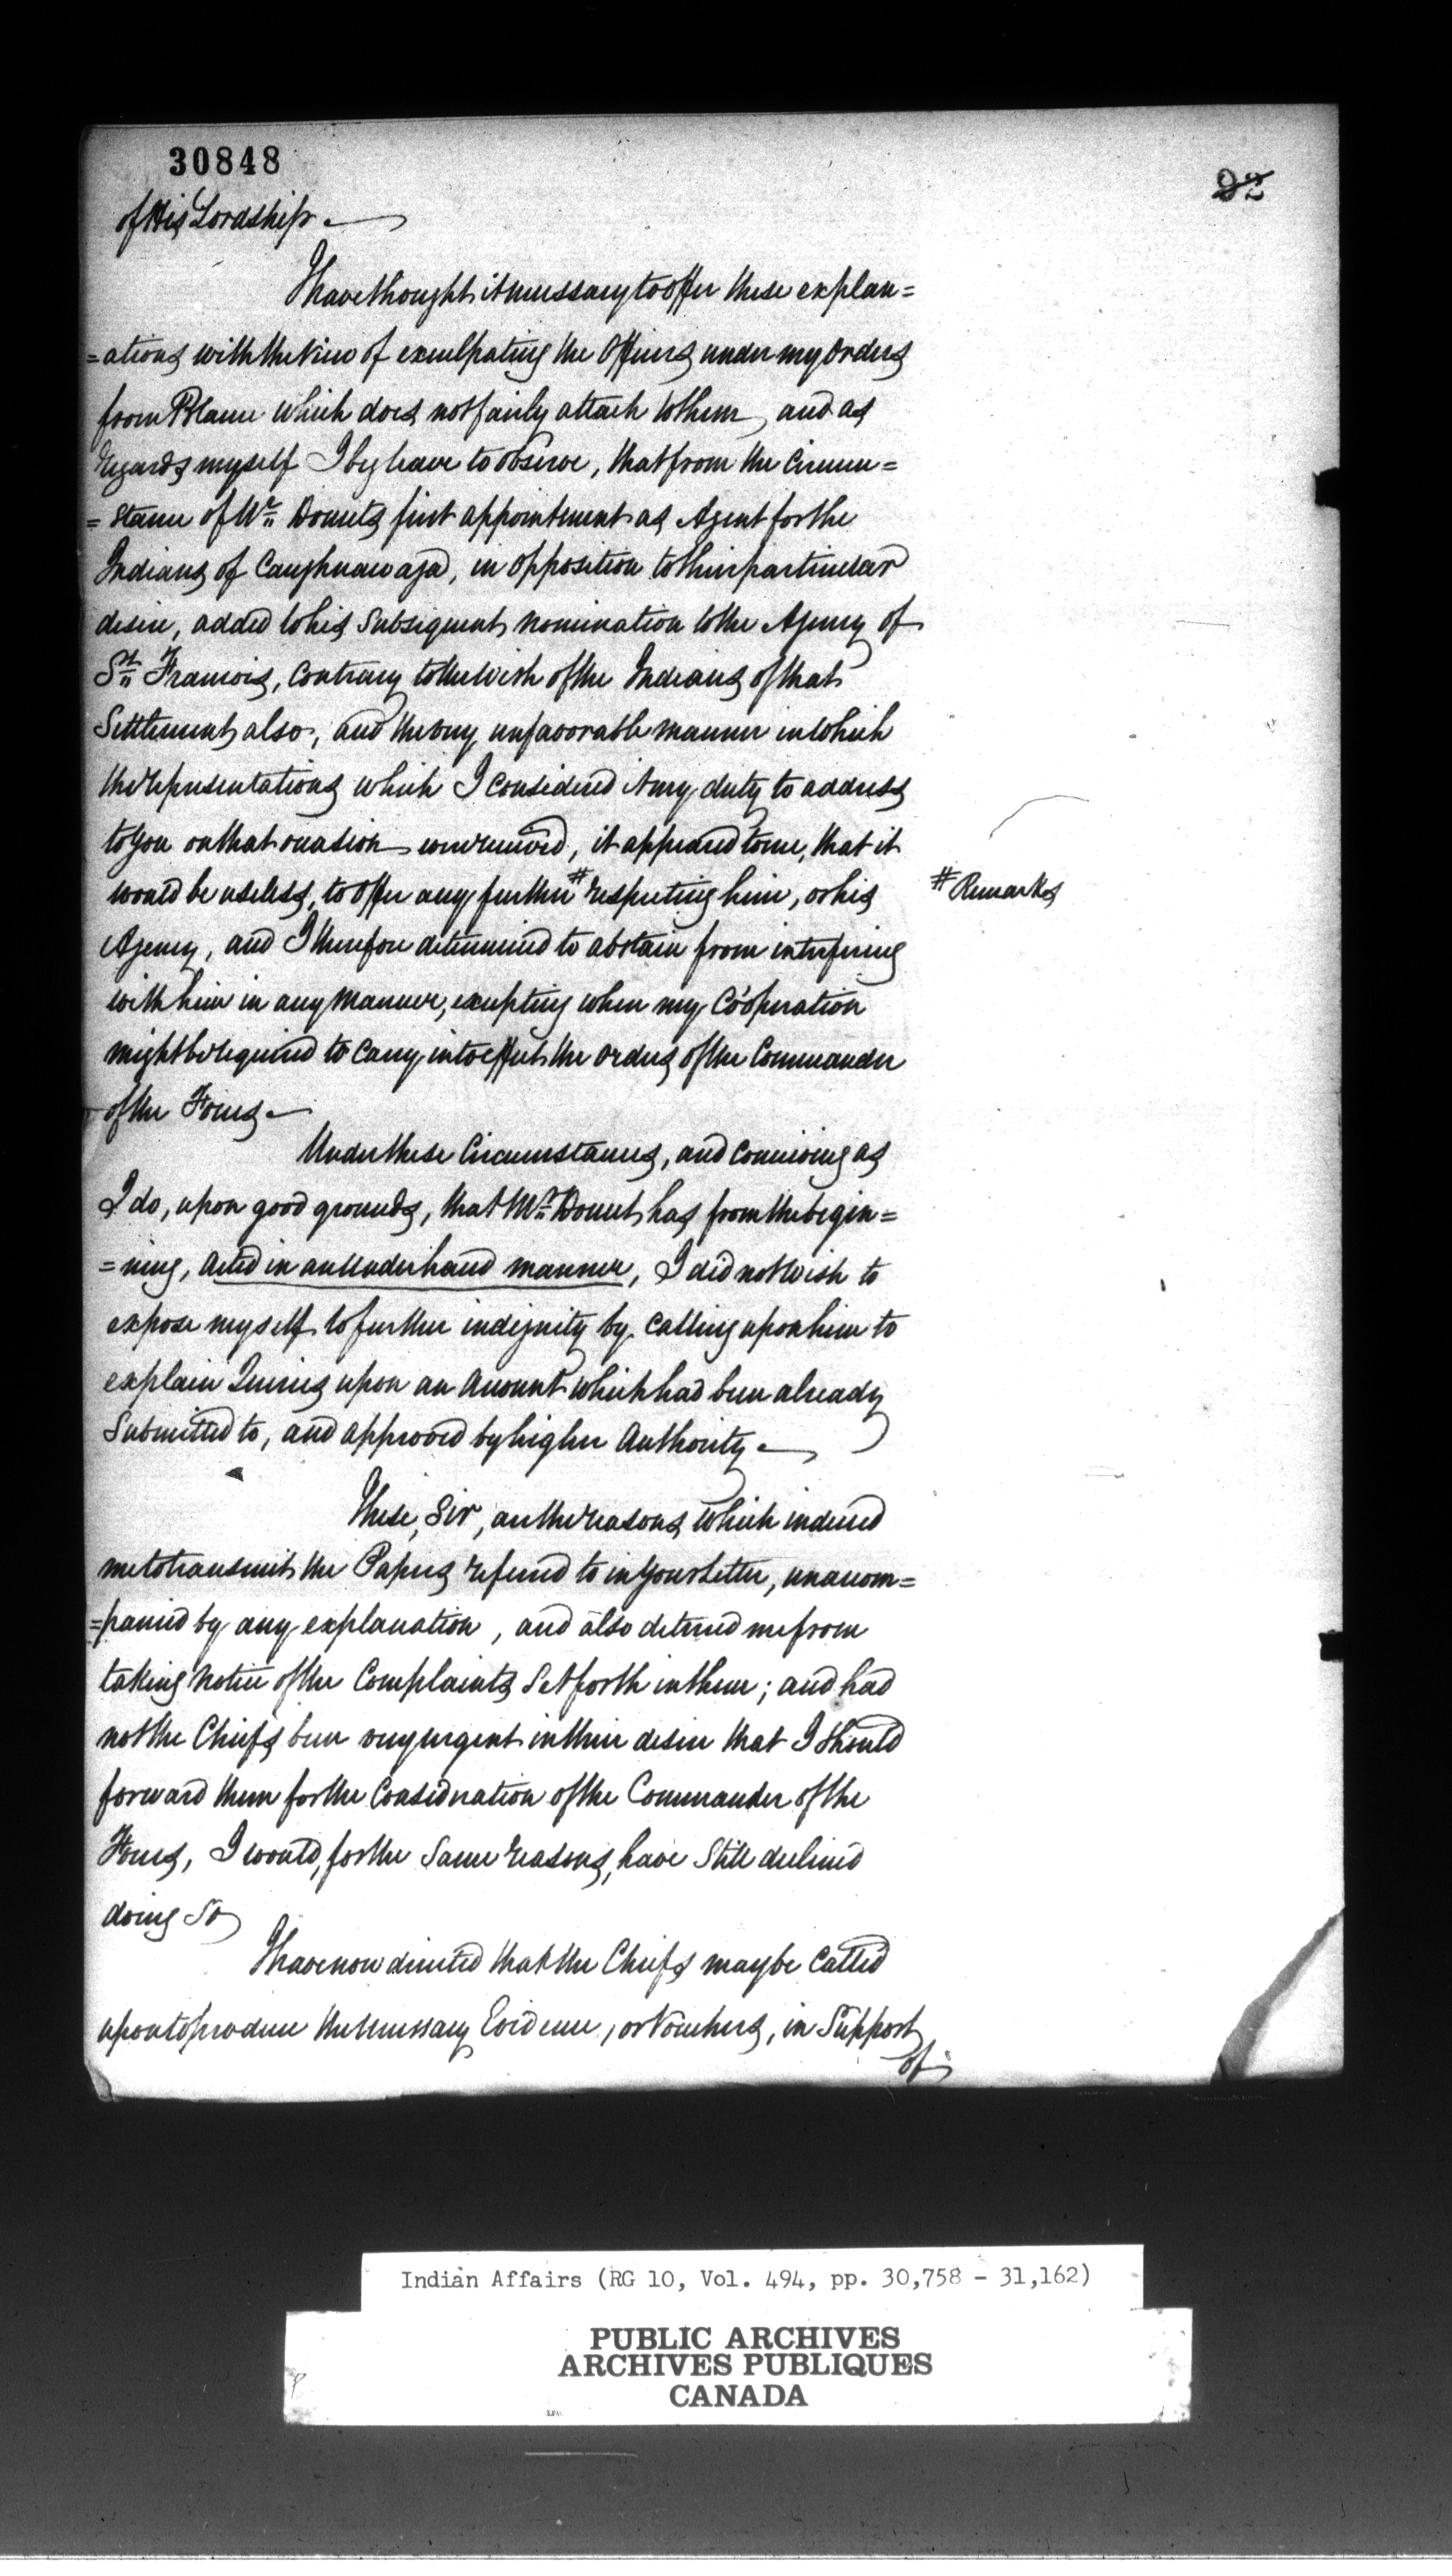 30848
22
of His Lordship. —
I have thought it necessary to offer these explan=
=ations with the View of exculpating the Officers under my Orders
from Blame which does not fairly attach to them, and as
regards myself I beg leave to observe, that from the Circum=
=stance of Mr. Doucets first appointment as Agent for the
Indians of Caughnawaga, in opposition to their particular
desire, added to his Subsequent nomination to the Agency of
St. Francois, Contrary to the Wish of the Indians of that
Settlement also, and the very unfavorable manner in which
the representations which I considered it my duty to address
to You on that occasion were received, it appeared to me, that it
would be useless, to offer any further # respecting him, or his
# Remarks
Agency, and I therefore determined to abstain from interfering
with him in any Manner, excepting when my Coóperation
might be required to Carry into effect the Orders of the Commander
of the Forces. —
Under these Circumstances, and Conceiving as
I do, upon good grounds, that Mr. Doucet has from the begin=
=ning, Acted in an Underhand manner, I did not Wish to
expose myself to further indignity by Calling upon him to
explain Queries upon an Account which had been already
Submitted to, and approved by higher Authority. —
These, Sir, are the reasons which induced
me to transmit the Papers referred to in Your Letter, unaccom=
=panied by any explanation, and also deterred me from
taking Notice of the Complaints Set forth in them; and had
not the Chiefs been very urgent in their desire that I Should
forward them for the Consideration of the Commander of the
Forces, I would, for the Same reasons, have Still declined
doing So
I have now directed that the Chiefs may be Called
upon to produce the necessary Evidence, or Vouchers, in Support
of
Indian Affairs (RG 10, Vol. 494, pp. 30,758 - 31,162)
PUBLIC ARCHIVES
ARCHIVES PUBLIQUES
CANADA